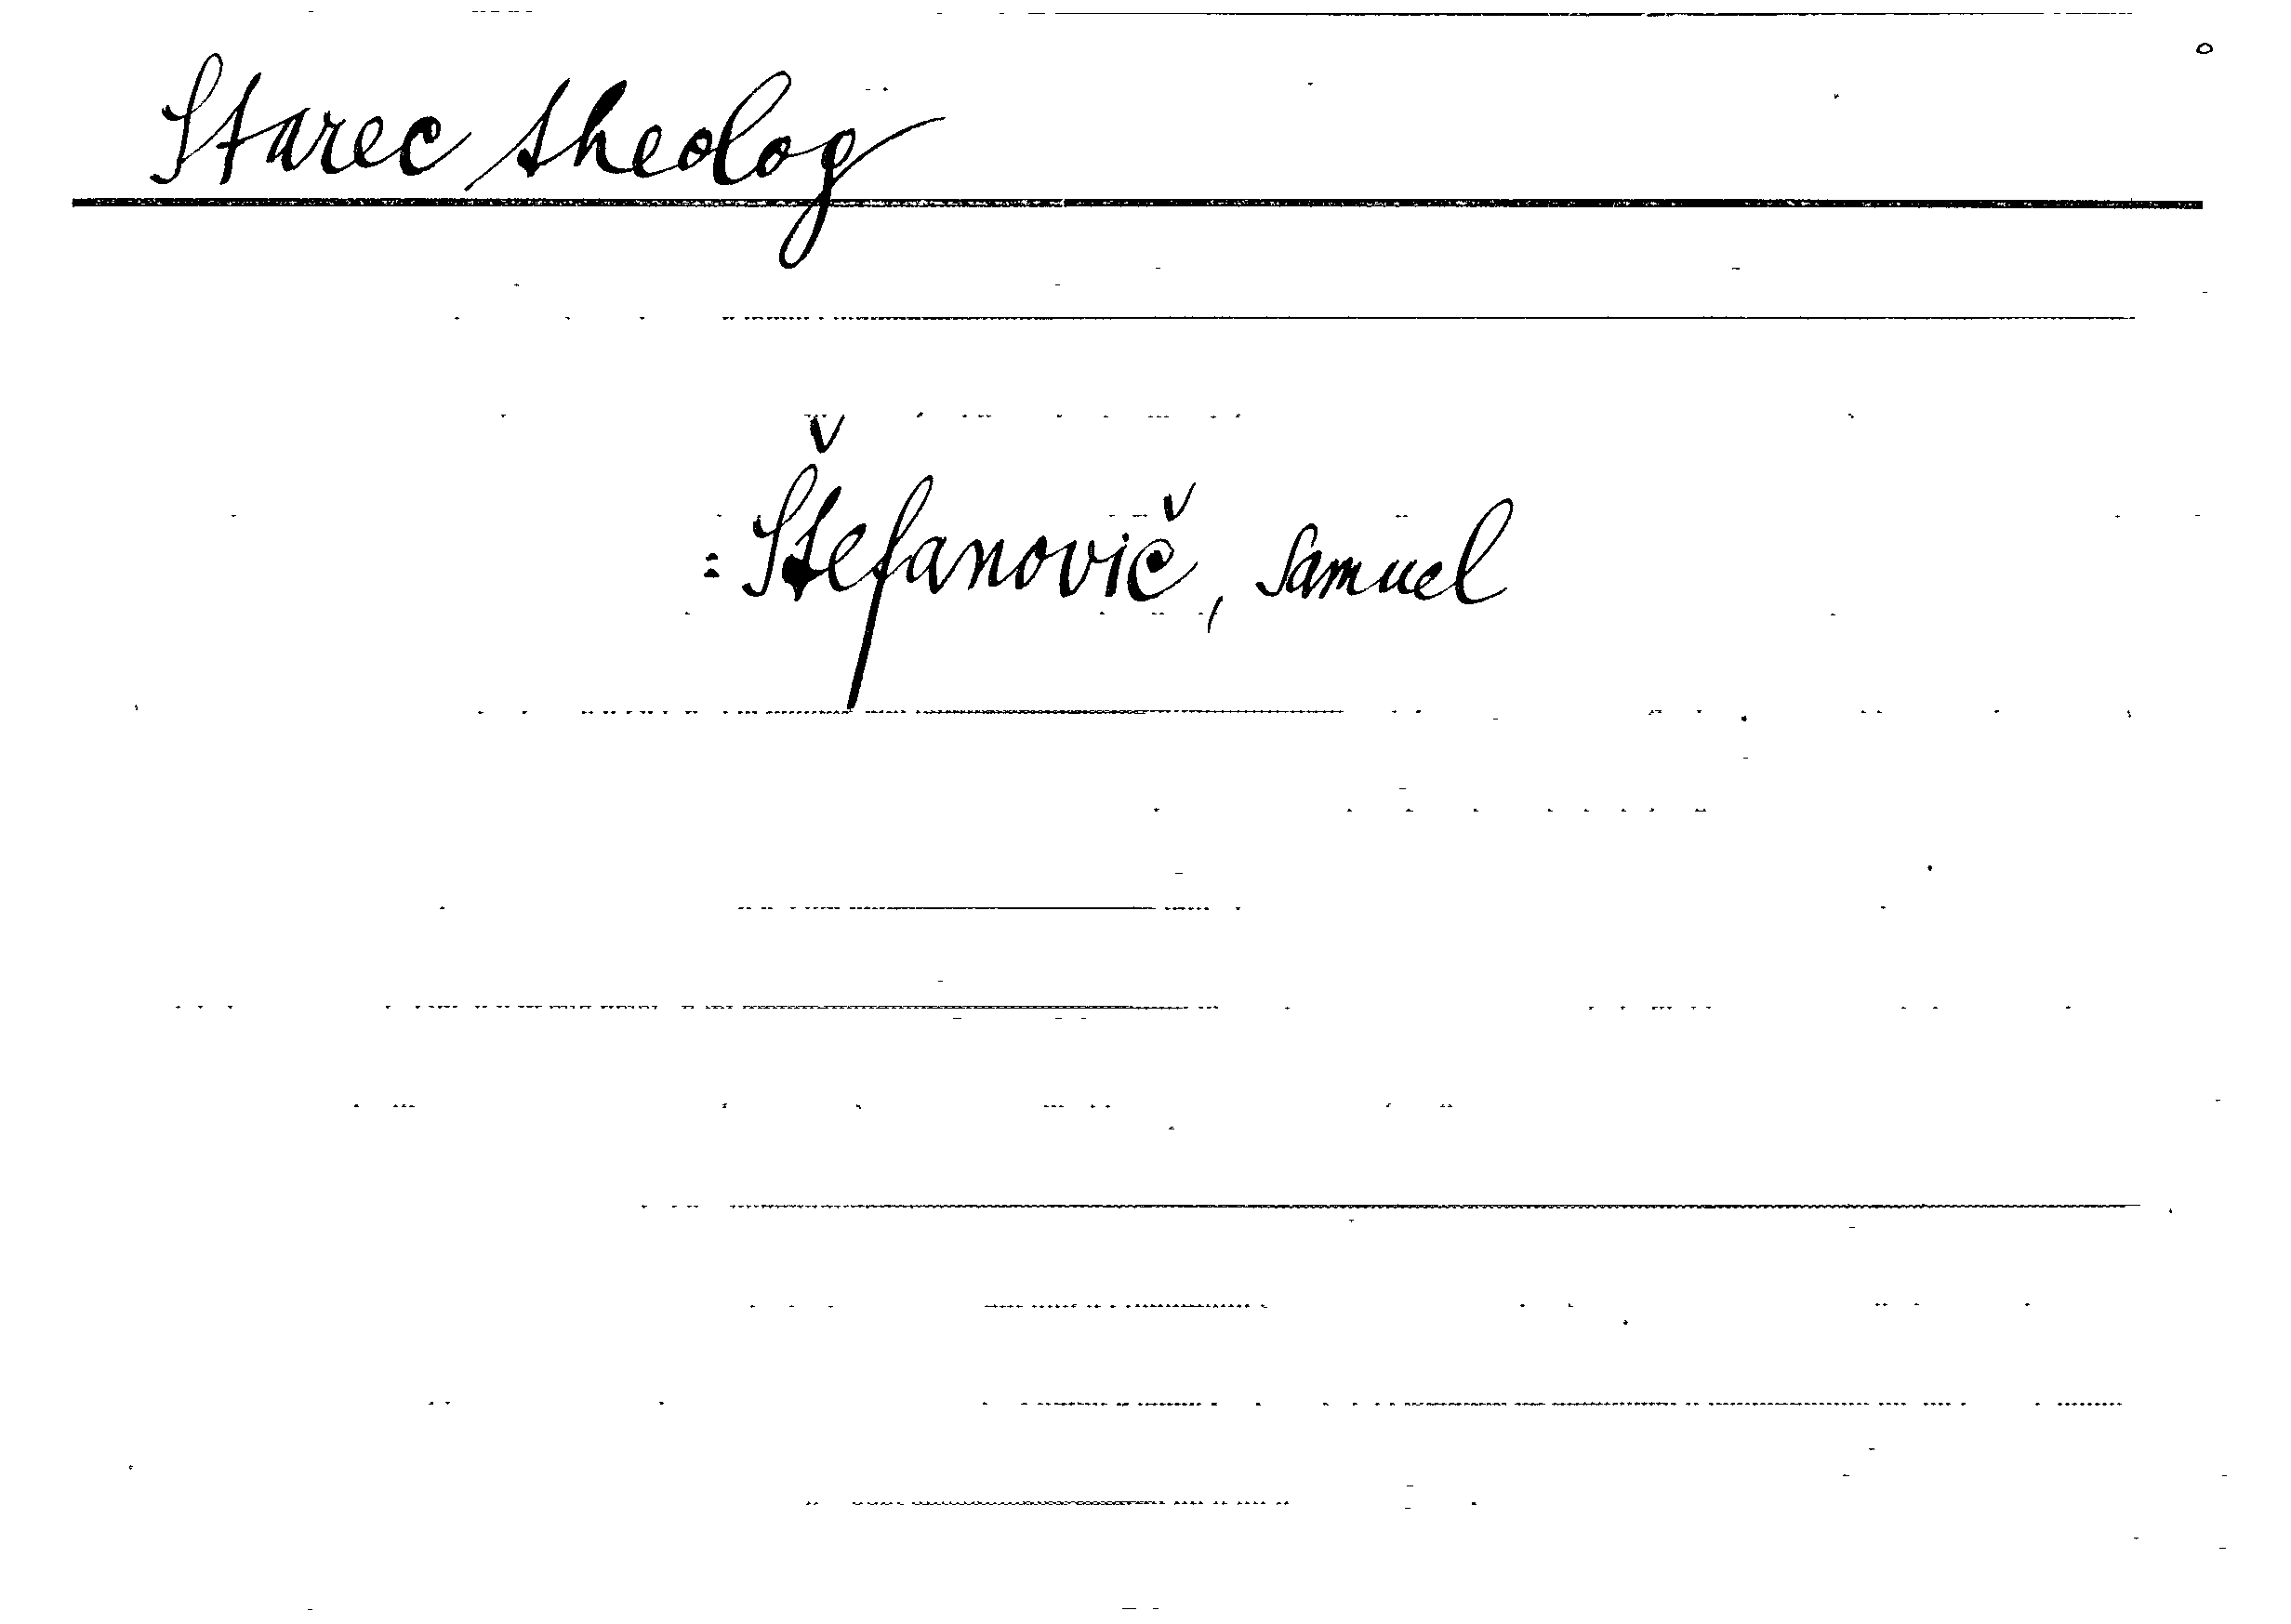 Starec theolog
: Štefanovič, Samuel